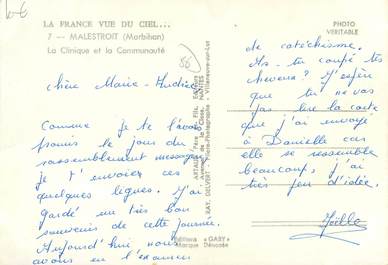 LA FRANCE VUE DU CIEL...
7 — MALESTROIT (Morbihan)
La Clinique et la Communauté
PHOTO
VÉRITABLE
Chère Marie-Andrée
Comme je te l'avais
promis le jour du
rassemblement
je t'envoie ces
quelques lignes. J'ai
gardé un très bon
souvenir de cette journée.
Aujourd'hui nous
avons eu l'examen
de catéchisme.
As-tu coupé tes
cheveux ? J'espère
que tu ne vas
pas lire la carte
que j'ai envoyé
à Danielle car
elle se ressemble
beaucoup, j'ai
très peu d'idée.
Joëlle
ARTAUD Père et Fils, Éditeurs
de la Close, NANTES
RAY. DELVERT Villeneuve-sur-Lot
Éditions "GABY"
Marque Déposée